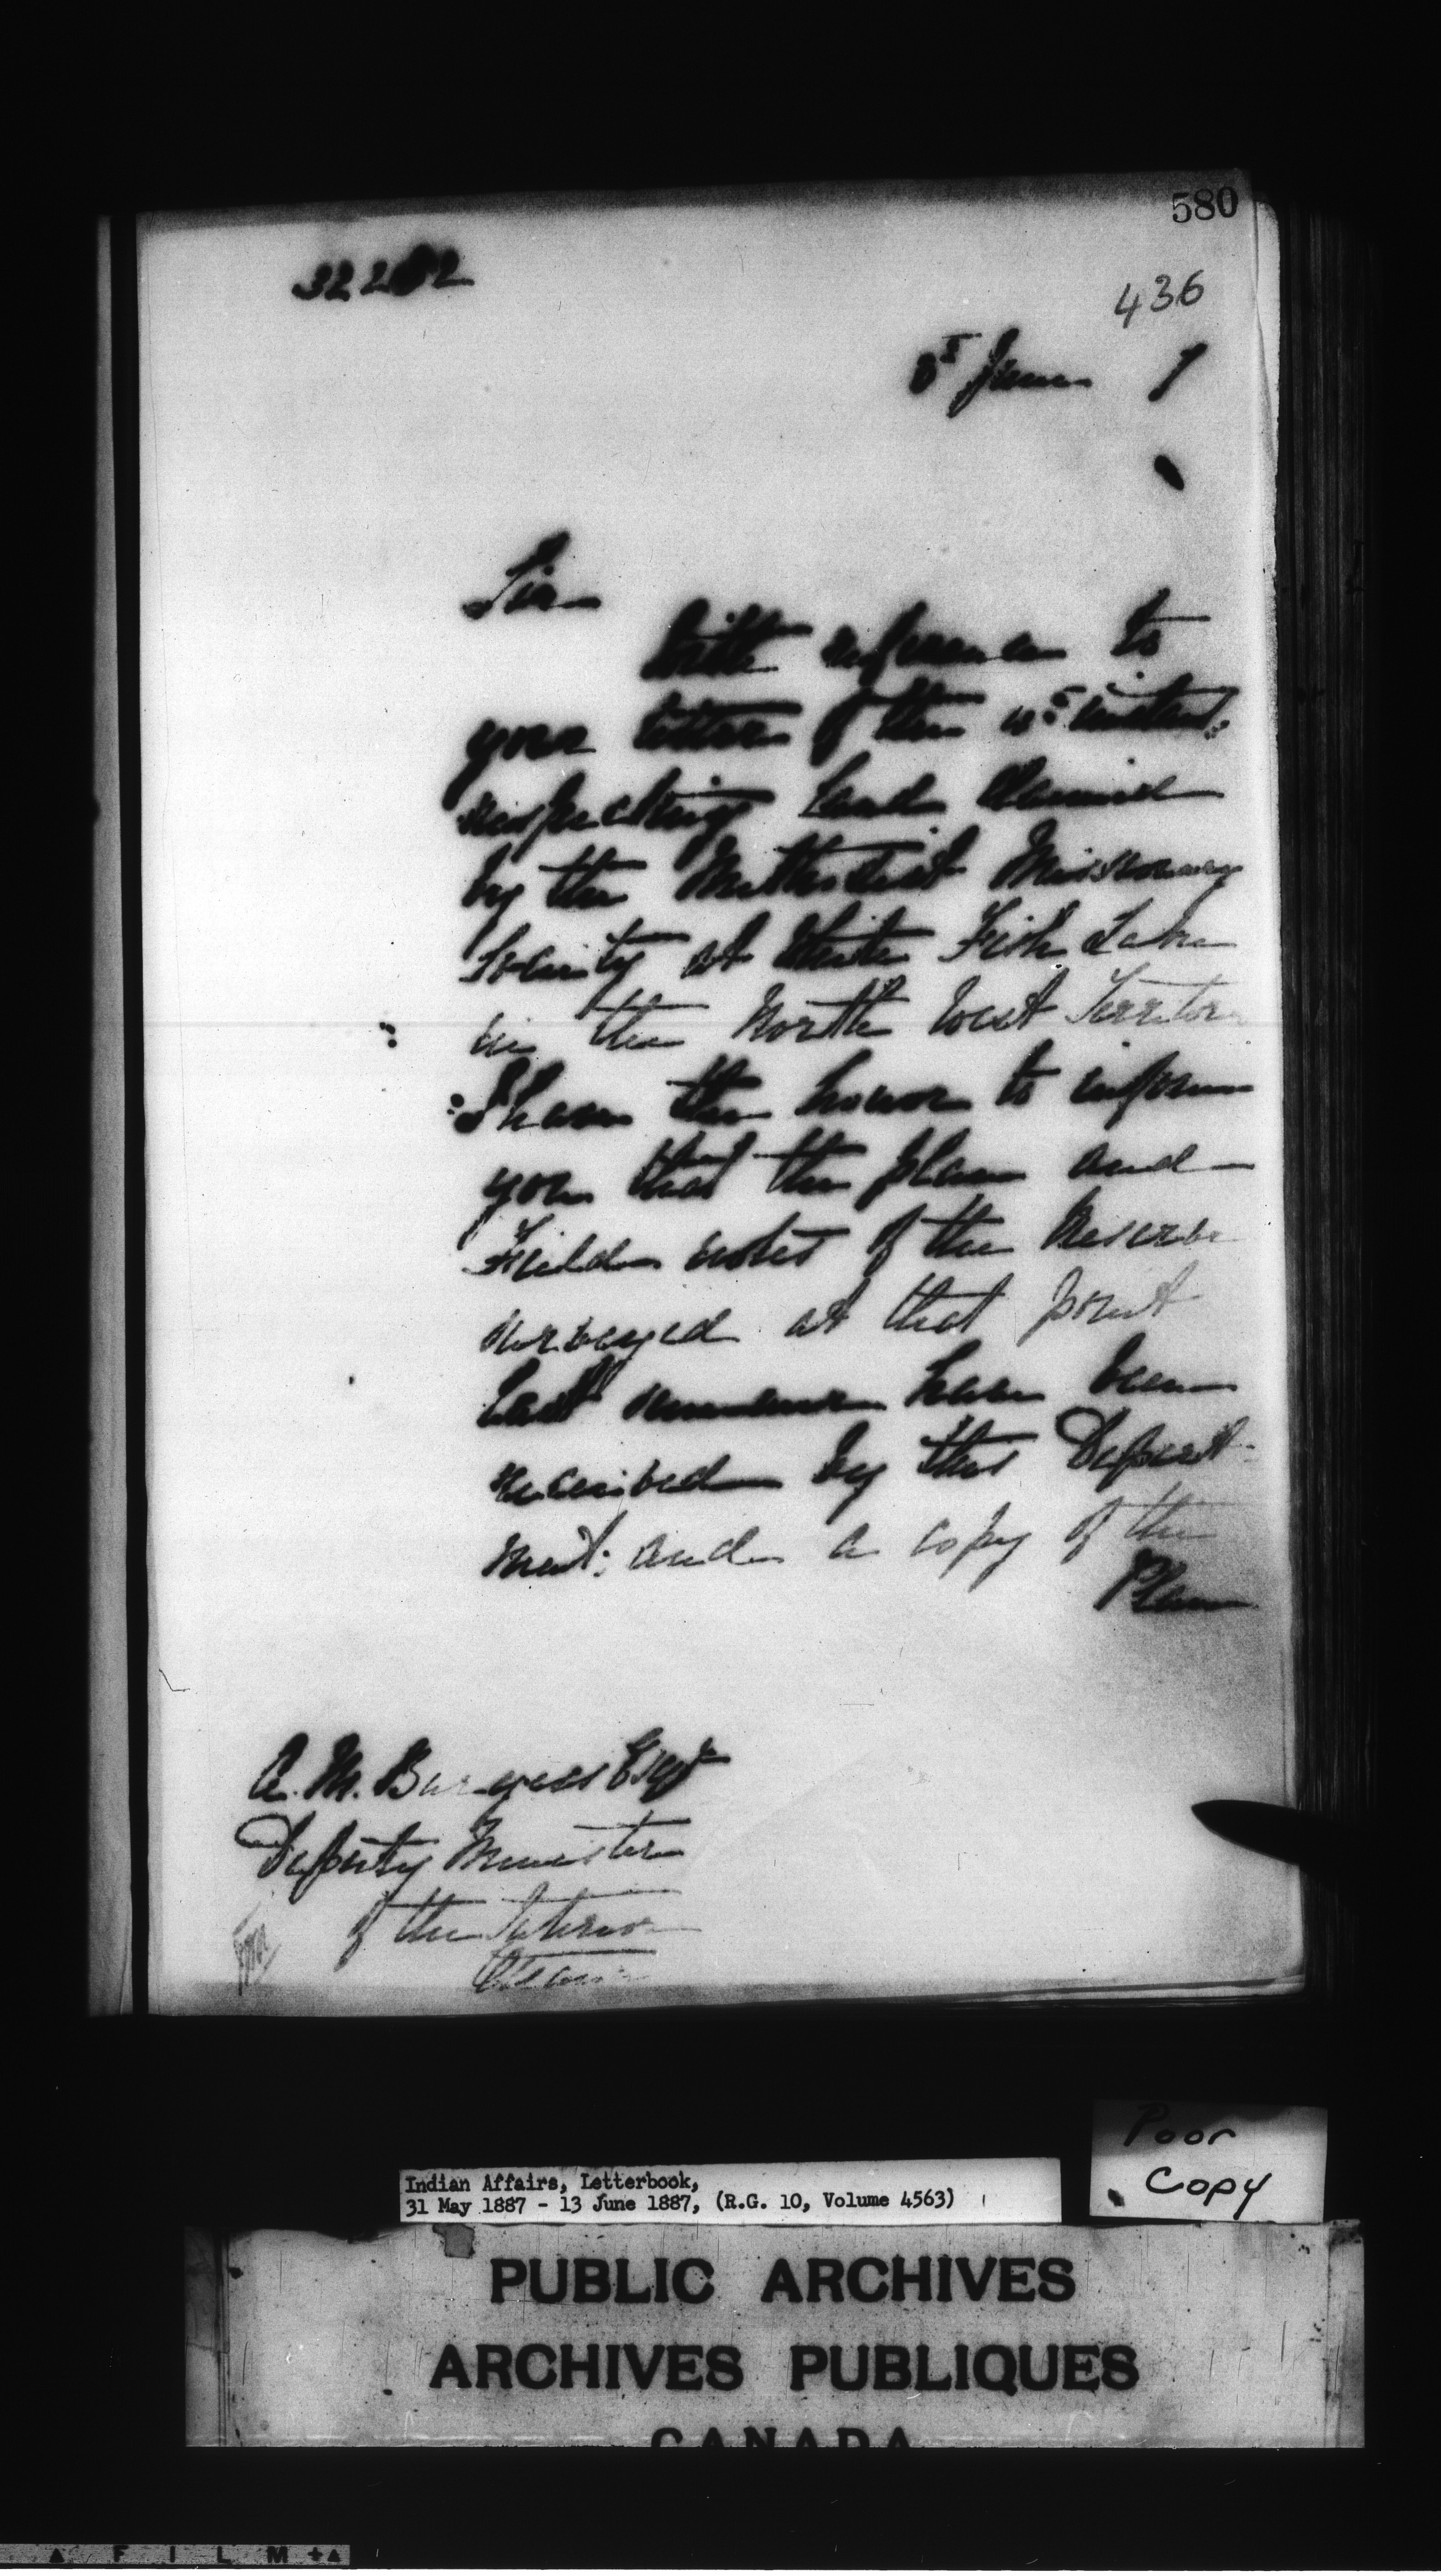 580
436
June 7
Sir
With reference to
your letter of the instant
respecting Land claimed
by the Methodist Missionary
Society at White Fish Lake
in the North West Territory
I have the honor to inform
you that the plan and
Field notes of the Reserve
surveyed at that point
last summer have been
received by this Depart-
ment; and a copy of the
Plan
A. M. Burgess Esqr
Deputy Minister
of the Interior
Ottawa
Poor
Copy
Indian Affairs, Letterbook,
31 May 1887 - 13 June 1887, (R.G. 10, Volume 4563)
PUBLIC ARCHIVES
ARCHIVES PUBLIQUES
CANADA
FILM